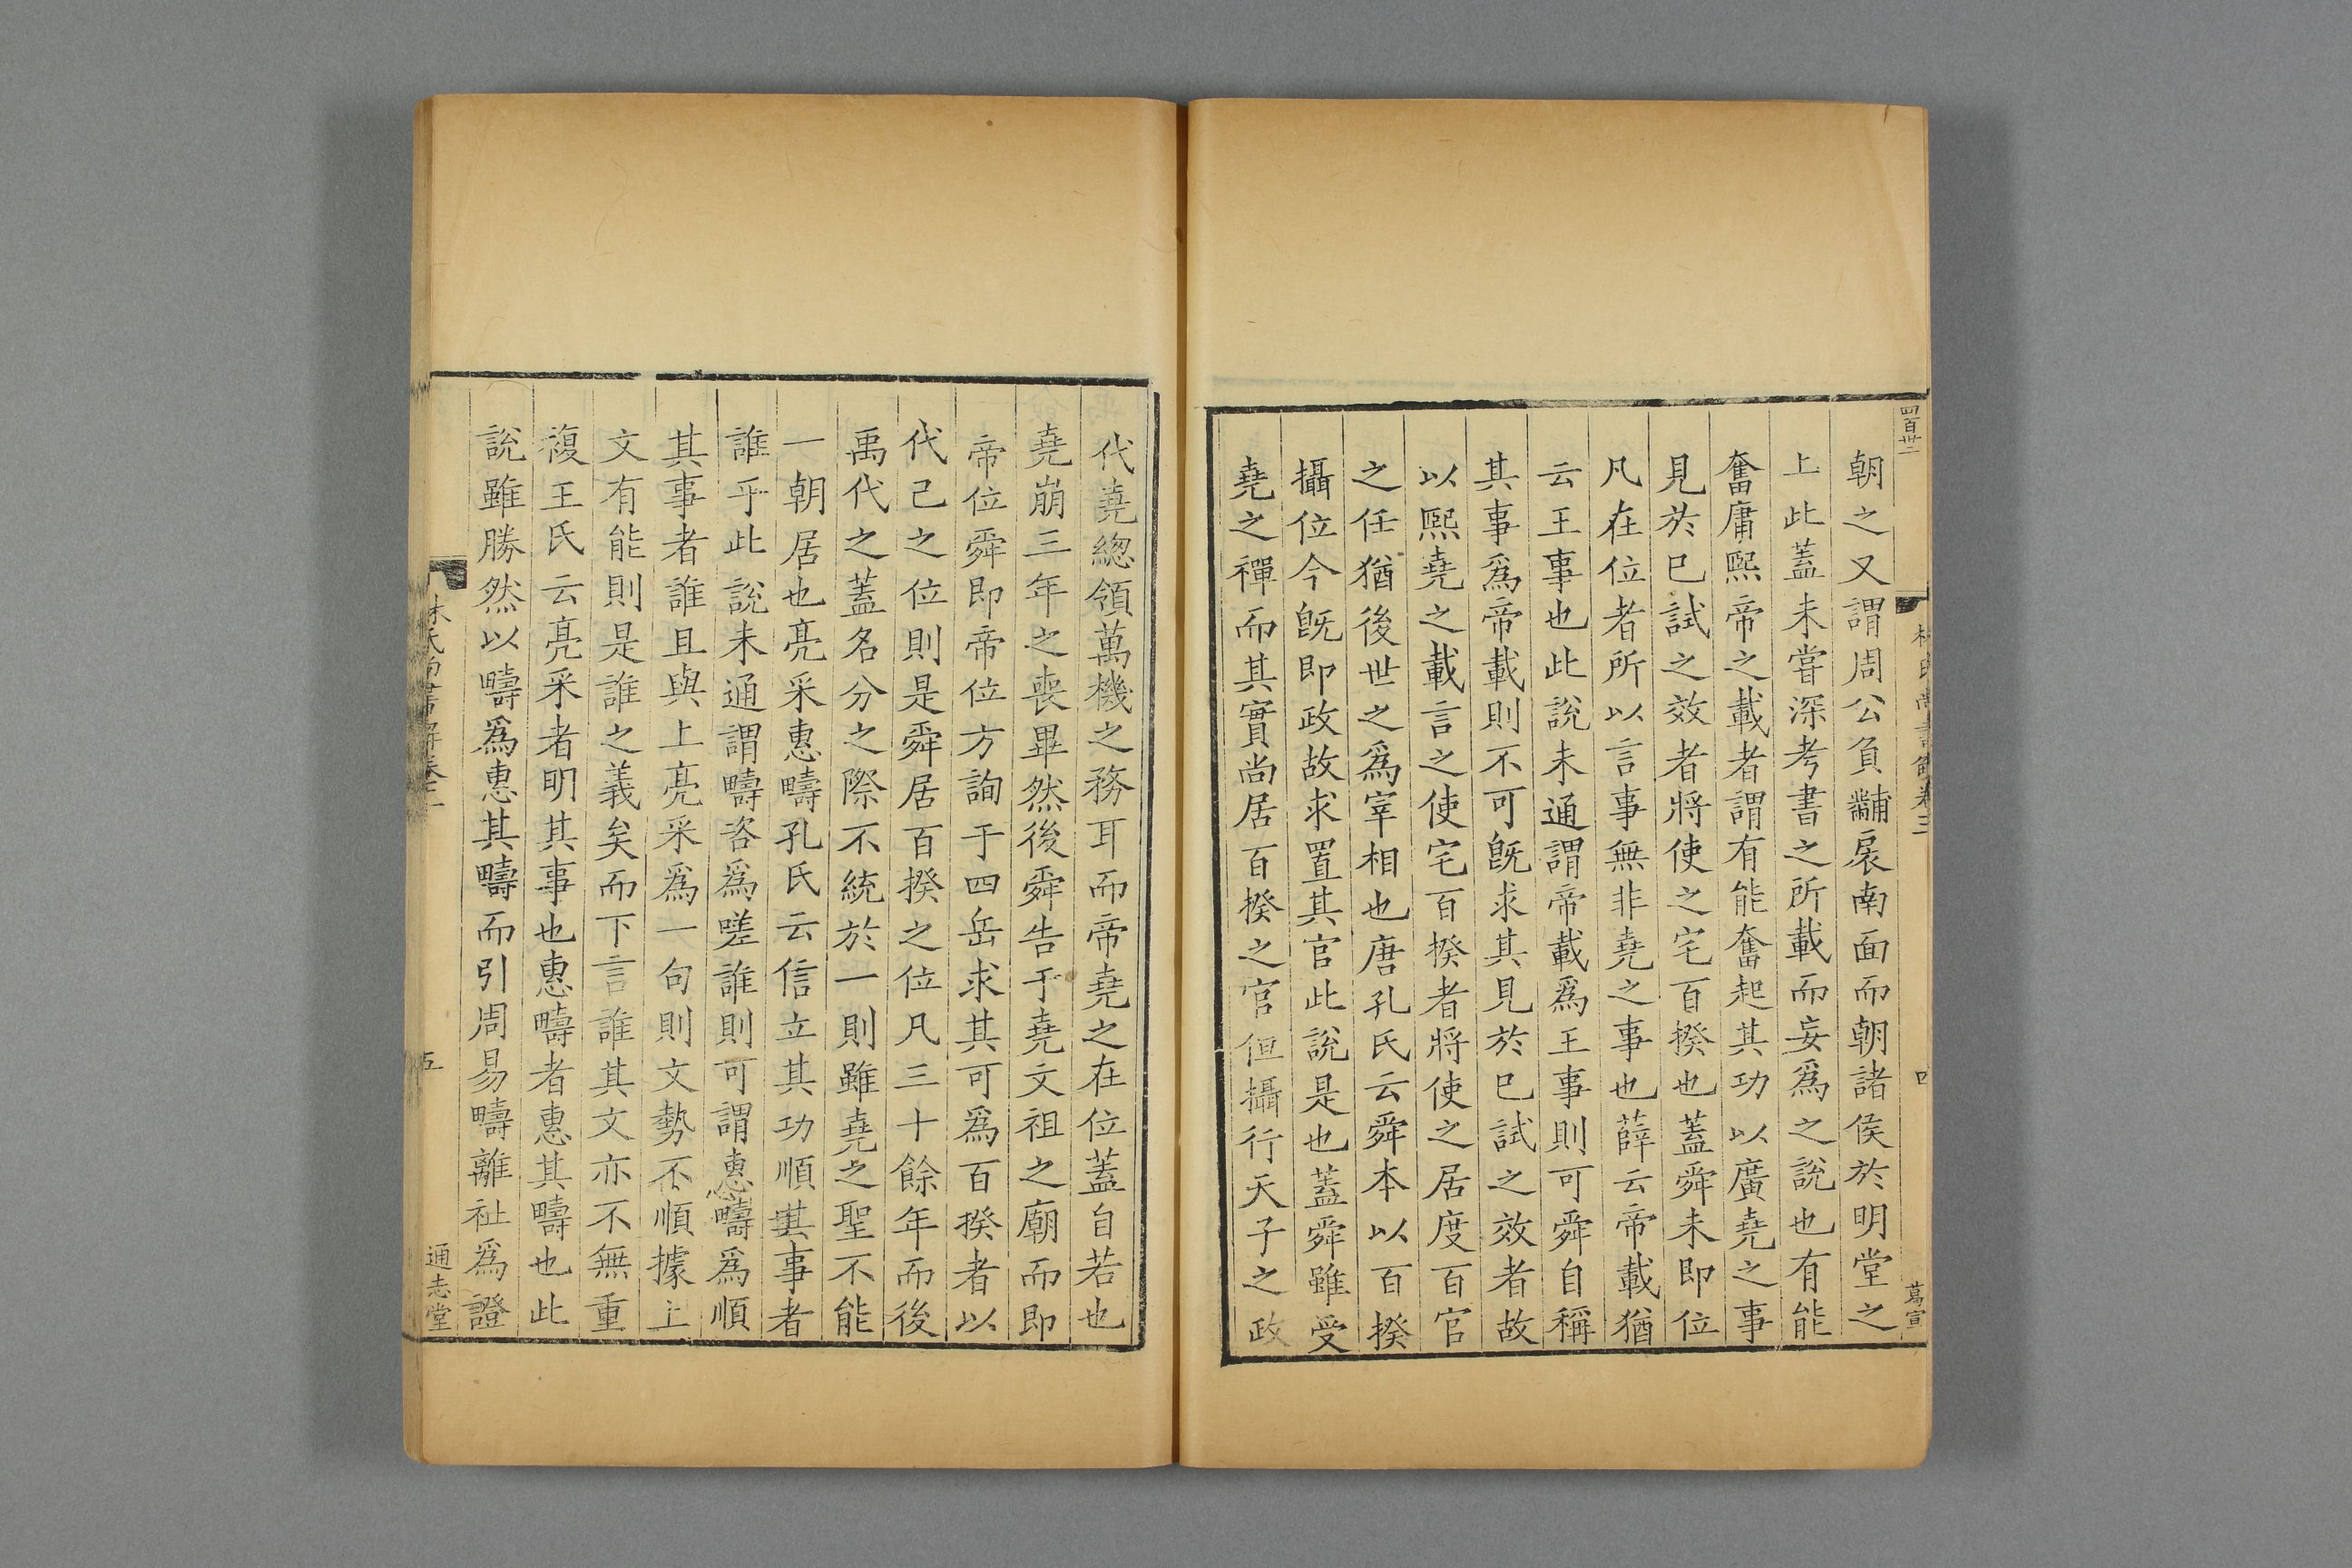 四百卅二
林氏尚書解卷三
四
葛宣
朝之又謂周公負黼扆南面而朝諸侯於明堂之
上此蓋未嘗深考書之所載而妄爲之說也有能
奮庸熙帝之載者謂有能奮起其功以廣堯之事
見於已試之效者將使之宅百揆也蓋舜未即位
凡在位者所以言事無非堯之事也薛云帝載猶
云王事也此說未通謂帝載爲王事則可舜自稱
其事爲帝載則不可旣求其見於已試之效者故
以熙堯之載言之使宅百揆者將使之居度百官
之任猶後世之爲宰相也唐孔氏云舜本以百揆
攝位今旣即政故求置其官此說是也蓋舜雖受
堯之禪而其實尚居百揆之官但攝行天子之政
代堯總領萬機之務耳而帝堯之在位蓋自若也
堯崩三年之喪畢然後舜告于堯文祖之廟而即
帝位舜即帝位方詢于四岳求其可爲百揆者以
代己之位則是舜居百揆之位凡三十餘年而後
禹代之蓋名分之際不統於一則雖堯之聖不能
一朝居也亮采惠疇孔氏云信立其功順其事者
誰乎此說未通謂疇咨爲嗟誰則可謂惠疇爲順
其事者誰且與上亮采爲一句則文勢不順據上
文有能則是誰之義矣而下言誰其文亦不無重
複王氏云亮采者明其事也惠疇者惠其疇也此
說雖勝然以疇爲惠其疇而引周易疇離祉爲證
林氏尚書解卷三
五
通志堂